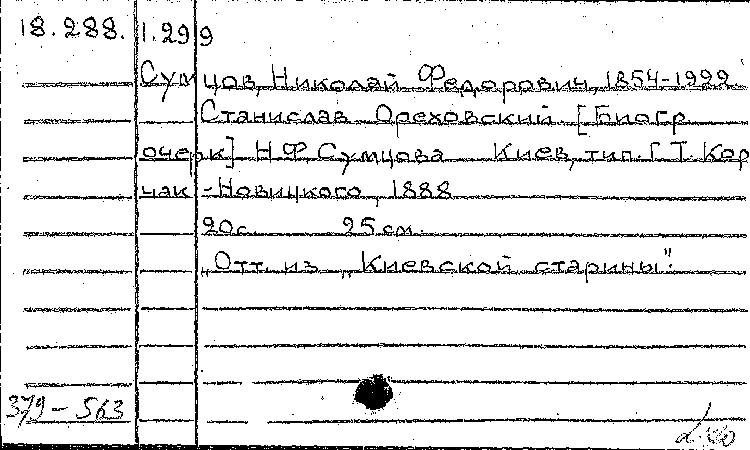 18.288. 1.299
Сумцов, Николай Федорович, 1854-1922.
Станислав Ореховский. [Биогр.
очерк] Н.Ф. Сумцова. Киев, тип. Г.Т. Кор
чак-Новицкого, 1888
20 с. 25 см.
„Отт. из „Киевской старины".
379-563